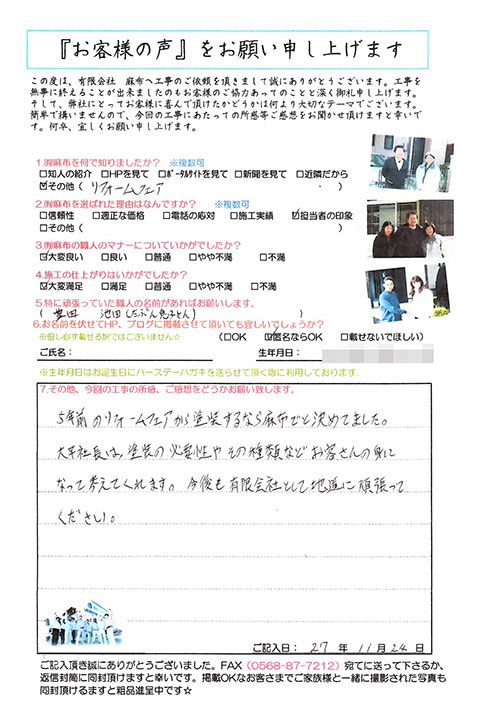 『お客様の声』をお願い申し上げます
この度は、有限会社 麻布へ工事のご依頼を頂きまして誠にありがとうございます。工事を
無事に終えることが出来ましたのもお客様のご協力あってのことと深く御礼申し上げます。
そして、弊社にとってお客様に喜んで頂けたかどうかは何より大切なテーマでございます。
簡単で構いませんので、今回の工事にあたっての所感等ご感想をお聞かせ頂けますと幸いで
す。何卒、宜しくお願い申し上げます。
1.㈲麻布を何で知りましたか？ ※複数可
□知人の紹介 □HPを見て □ポータルサイトを見て □新聞を見て □近隣だから
☑その他（ リフォームフェア ）
2.㈲麻布を選ばれた理由はなんですか？ ※複数可
□信頼性 □適正な価格 □電話の応対 □施工実績 ☑担当者の印象
□その他（ ）
3.㈲麻布の職人のマナーについていかがでしたか？
☑大変良い □良い □普通 □やや不満 □不満
4.施工の仕上がりはいかがでしたか？
☑大変満足 □満足 □普通 □やや不満 □不満
5.特に頑張っていた職人の名前があればお願いします。
（ 豊田 池田(たぶん ) ）
6.お名前を伏せてHP、ブログに掲載させて頂いても宜しいでしょうか？
※但し必ず載せる訳ではございません☆ （□OK ☑匿名ならOK □載せないでほしい）
ご氏名： 生年月日：
※生年月日はお誕生日にバースデーハガキを送らせて頂く際に利用しております.
7.その他、今回の工事の所感、ご感想をどうかお願い致します。
5年前のリフォームフェアから塗装するなら麻布でと決めてました。
大平社長は、塗装の必要性やその種類などお客さんの身に
なって考えてくれます。今後も有限会社として地道に頑張って
ください。
ご記入日： 27 年 11 月 24 日
ご記入頂き誠にありがとうございました。FAX（0568-87-7212）宛てに送って下さるか、
返信封筒に同封頂けますと幸いです。掲載OKなお客さまでご家族様と一緒に撮影された写真も
同封頂けるますと粗品進呈中です☆